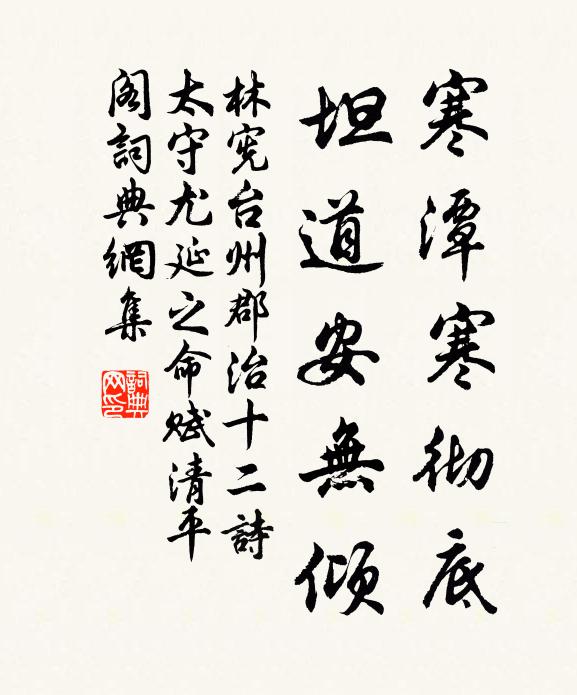 寒潭寒彻底
坦道安無傾
林宪台州郡治十二詩
太守尤延之命赋清平
阁詞典網集
詞典网印